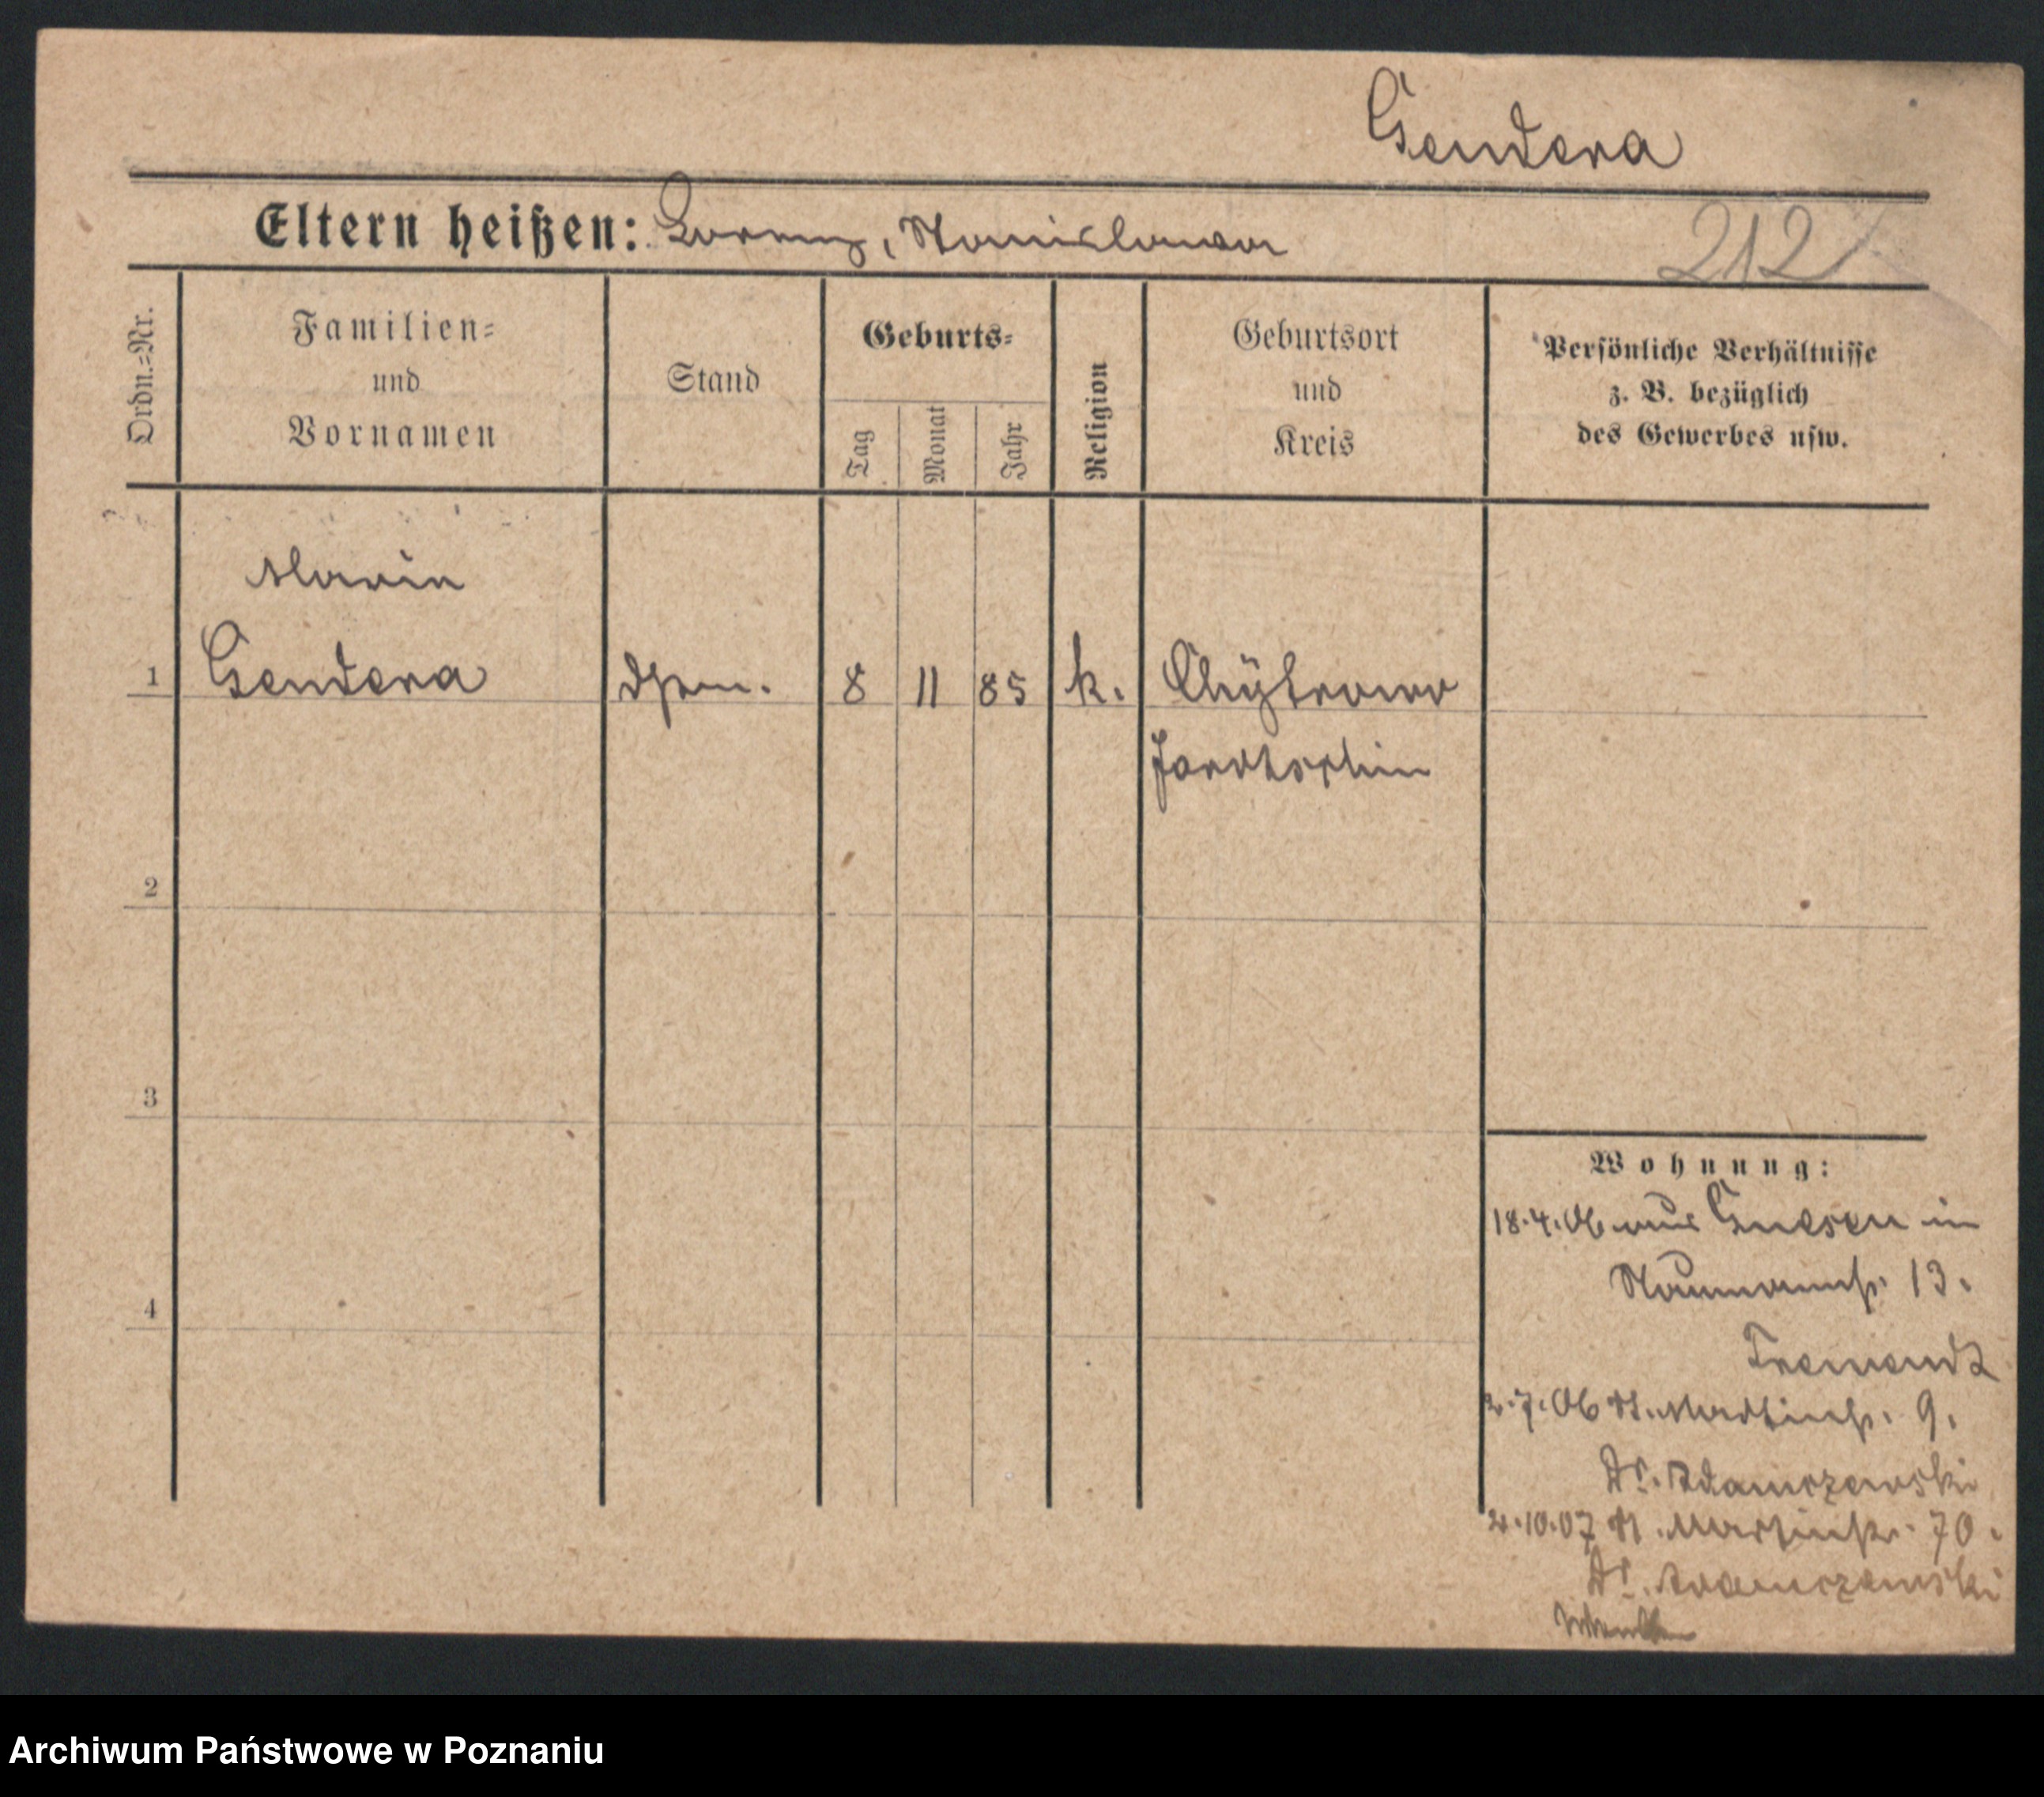 Gendera
Eltern heißen: Lorenz, Stanislawa
212
Ordn.=Nr.
Familien=
und
Vornamen
Stand
Geburts=
Tag
Monat
Jahr
Religion
Geburtsort
und
Kreis
Persönliche Verhältnisse
z. B. bezüglich
des Gewerbes usw.
Maria
1 Gendera 8 11 85 k. Chytrowo
Jarotschin
2
3
4
Wohnung:
18.4.06 aus Gnesen in
Naumannstr. 13.
2.7.06 St. Martinstr. 9.
Dr. Adamczewski
2.10.07 St. Martinstr. 70.
Dr. Adamczewski
Archiwum Państwowe w Poznaniu